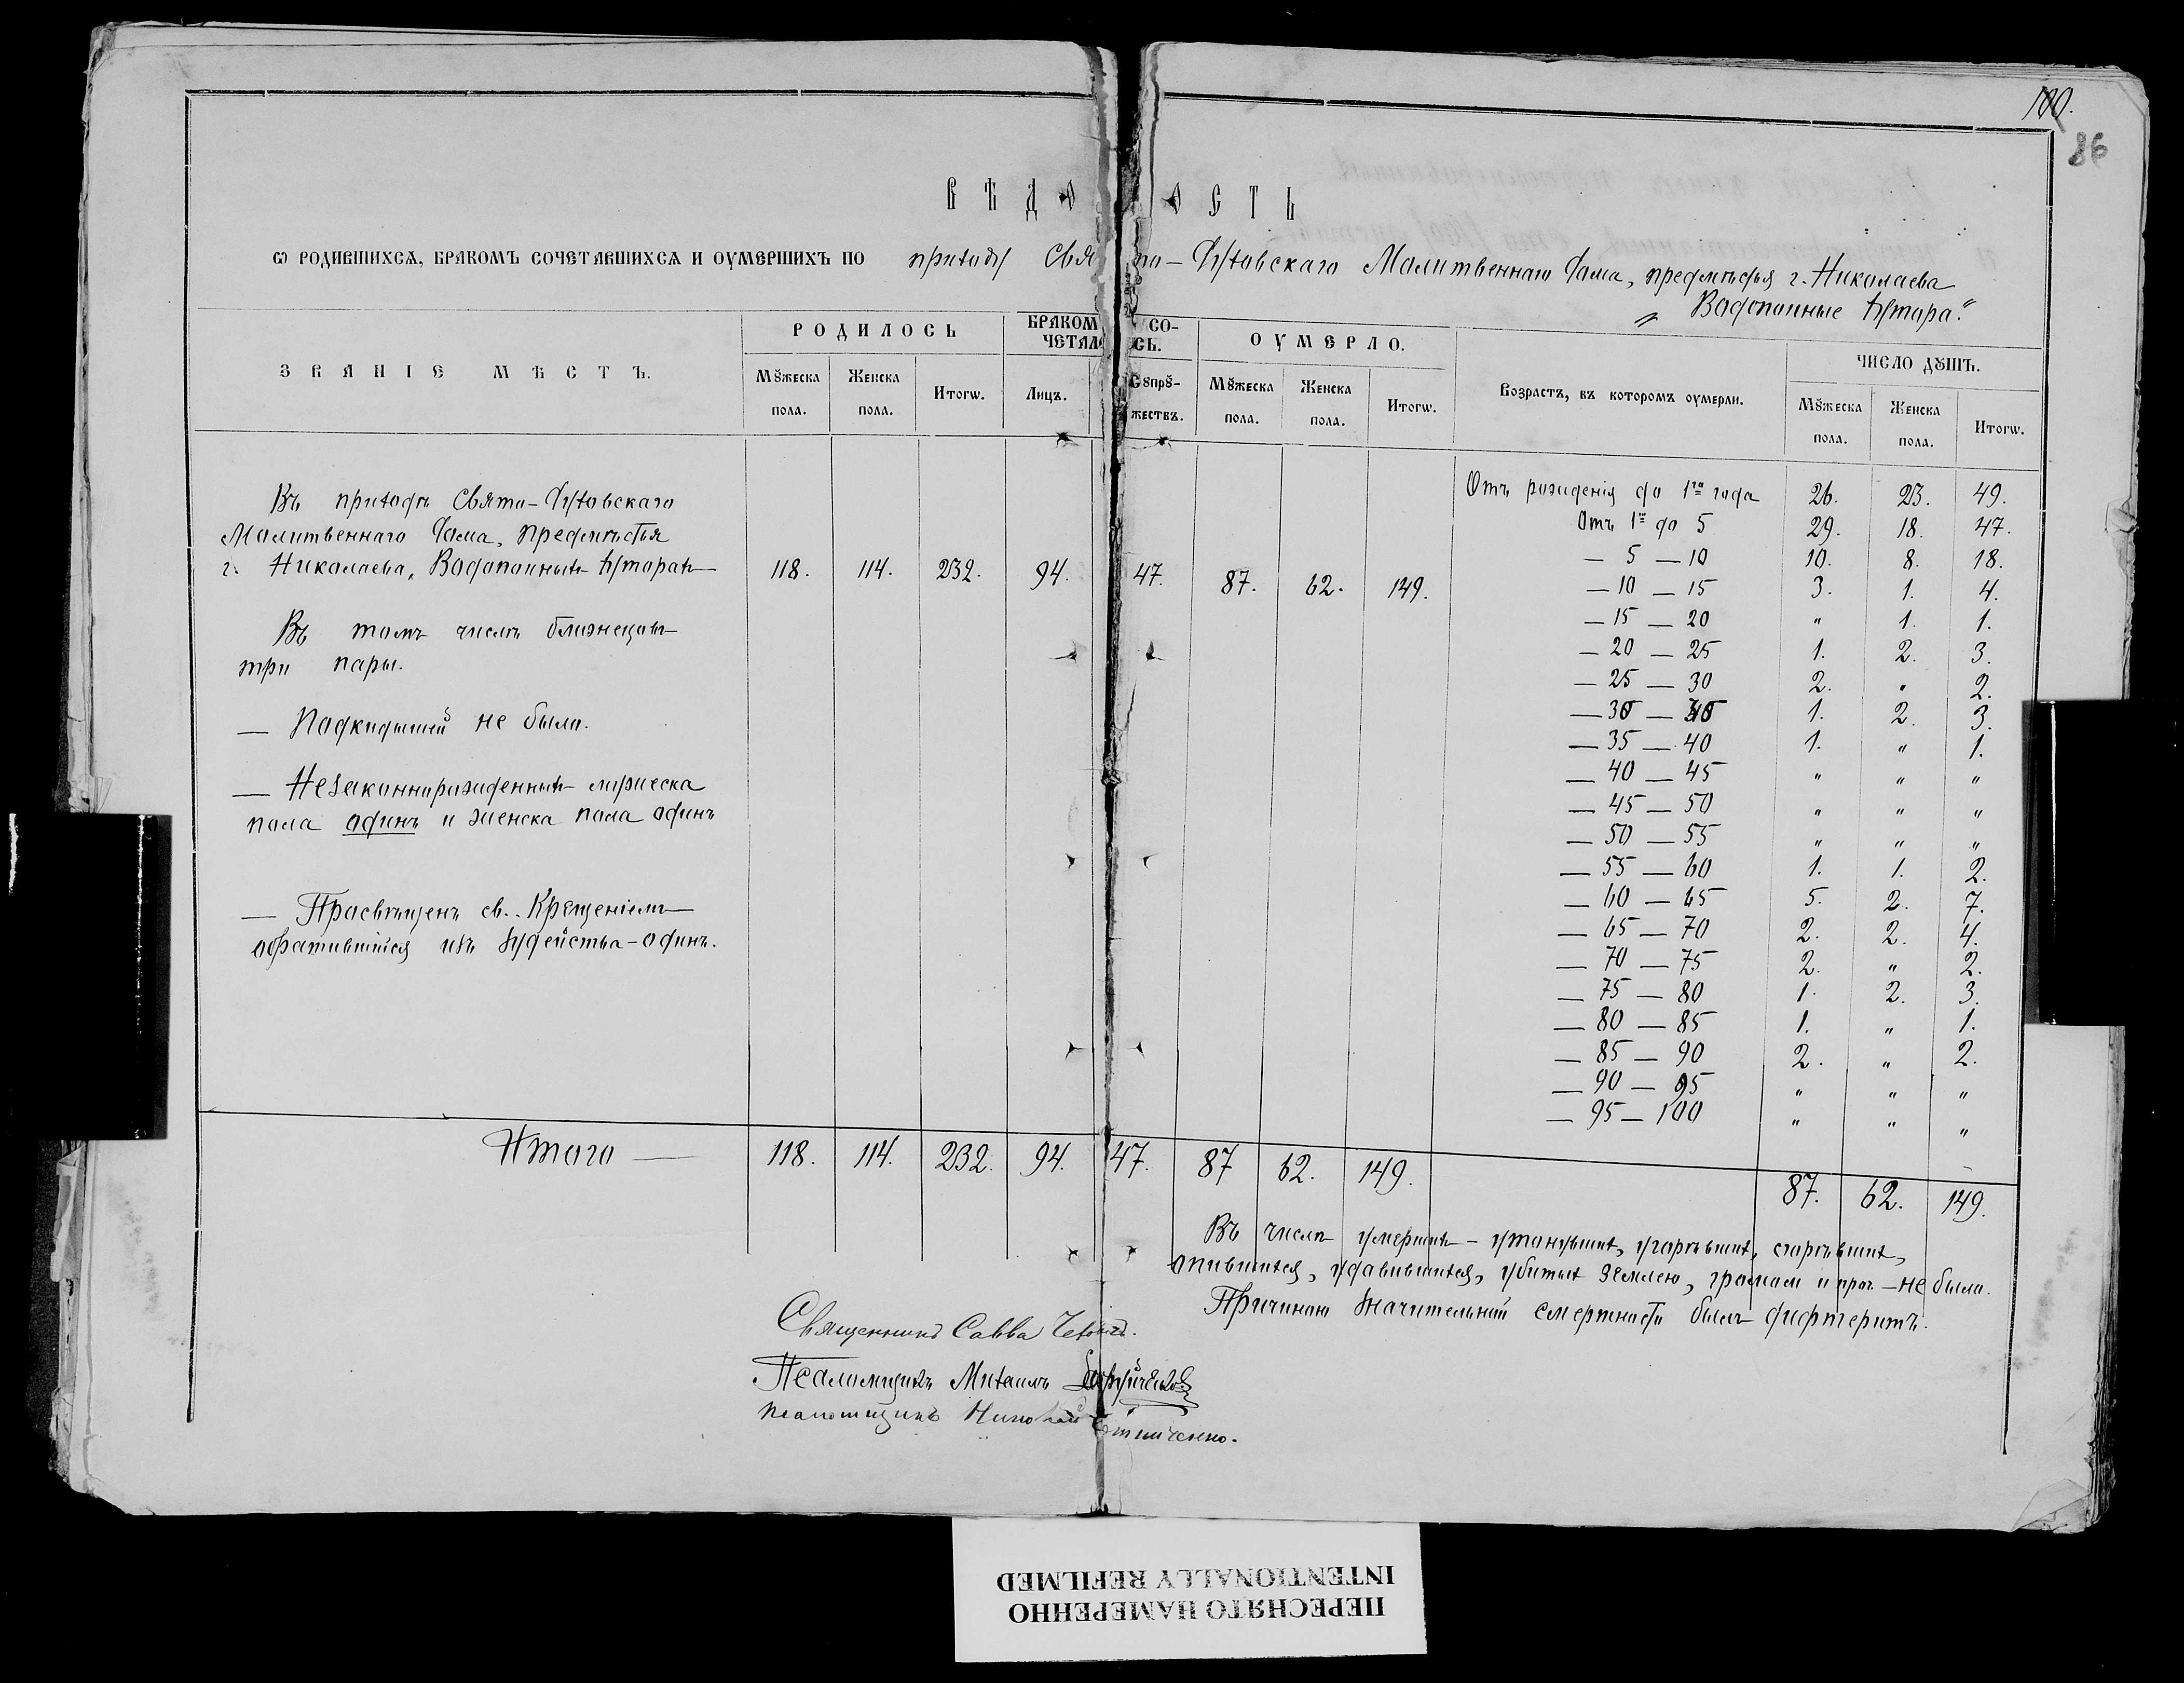 100.
86
ВѢДОМОСТЬ
Ѡ РОДИВШИХСѦ, БРАКОМЪ СОЧЕТАВШИХСѦ И ОУМЕРШИХЪ ПО приходу Свято-Духовскаго Молитвеннаго Дома, предмѣстья г. Николаева
„Водопойные Хутора“
ЗВАНІЕ МѢСТЪ.
РОДИЛОСЬ
Мꙋжеска пола.
Женска пола.
Итогѡ.
БРАКОМЪ СО-
ЧЕТАЛОСЬ.
Лицъ.
Сꙋпрꙋ-
жествъ.
ОУМЕРЛО.
Мꙋжеска пола.
Женска пола.
Итогѡ.
Возрастъ, въ которомъ оумерли.
ЧИСЛО ДꙊШЪ.
Мꙋжеска пола.
Женска пола.
Итогѡ.
Въ приходѣ Свято-Духовскаго
Молитвеннаго Дома, предмѣстья
г. Николаева, Водопойныхъ Хуторахъ — 118. 114. 232. 94. 47. 87. 62. 149.
Въ томъ числѣ близнецовъ
три пары.
— Подкидышей не было.
— Незаконнорожденныхъ мужеска
пола одинъ и женска пола одинъ
— Просвѣщенъ св. Крещеніемъ
обратившійся изъ Іудейства - одинъ.
Отъ рожденія до 1го года 26. 23. 49.
Отъ 1го до 5 29. 18. 47.
— 5 — 10 10. 8. 18.
— 10 — 15 3. 1. 4.
— 15 — 20 " 1. 1.
— 20 — 25 1. 2. 3.
— 25 — 30 2. " 2.
— 30 — 35 1. 2. 3.
— 35 — 40 1. " 1.
— 40 — 45 " " "
— 45 — 50 " " "
— 50 — 55 " " "
— 55 — 60 1. 1. 2.
— 60 — 65 5. 2. 7.
— 65 — 70 2. 2. 4.
— 70 — 75 2. " 2.
— 75 — 80 1. 2. 3.
— 80 — 85 1. " 1.
— 85 — 90 2. " 2.
— 90 — 95 " " "
— 95 — 100 " " "
Итого — 118. 114. 232. 94. 47. 87 62. 149. 87. 62. 149.
Въ числѣ умершихъ - утонувшихъ, угорѣвшихъ, сгорѣвшихъ,
опившихся, удавившихся, убитыхъ землею, громомъ и проч. — не было.
Причиною значительной смертности былъ дифтеритъ.
Священникъ Савва
Псаломщикъ Михаилъ
Псаломщикъ Николай
ПЕРЕСНЯТО НАМЕРЕННО
INTENTIONALLY REFILMED